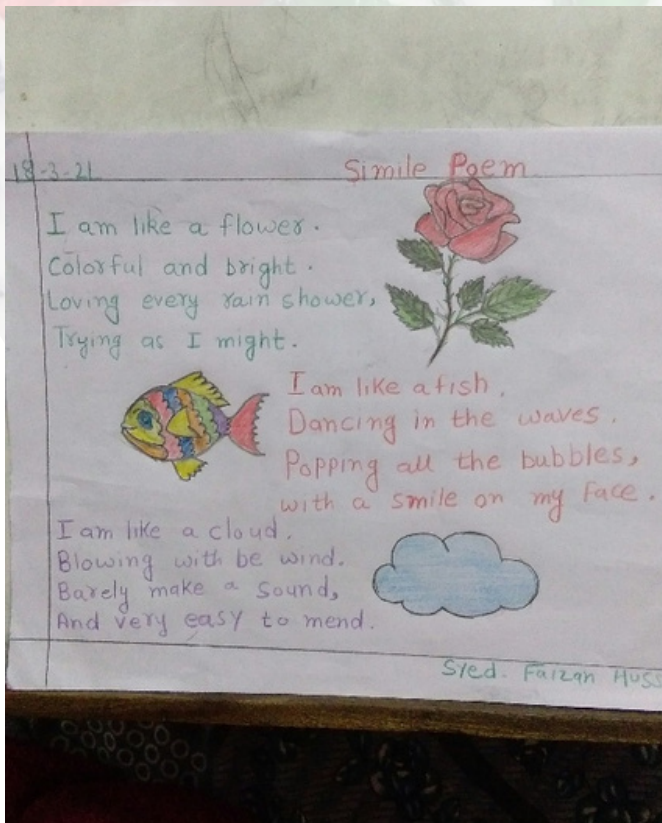 18-3-21
Simile Poem
I am like a flower.
Colorful and bright.
Loving every rain shower,
Trying as I might.
I am like a fish.
Dancing in the waves.
Popping all the bubbles,
with a smile on my face.
I am like a cloud.
Blowing with be wind.
Barely make a sound,
And very easy to mend.
Syed. Faizan Huss